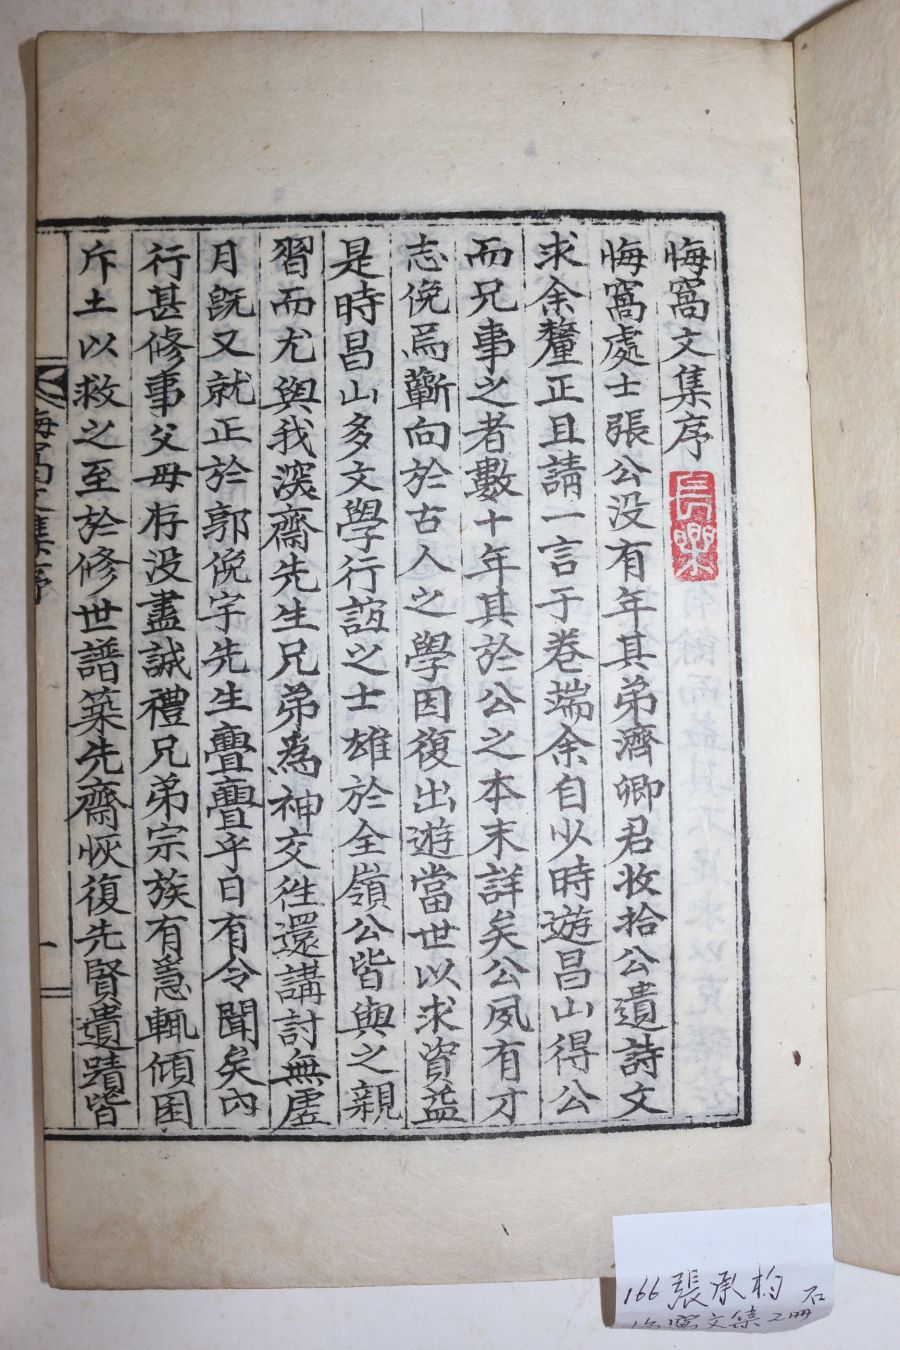 悔窩文集序
長樂
悔窩處士張公没有年其弟濟卿君收拾公遺詩文
求余釐正且請一言于卷端余自少時遊昌山得公
而兄事之者數十年其於公之本末詳矣公夙有才
志俛焉蘄向於古人之學因復出遊當世以求資益
是時昌山多文學行誼之士雄於全嶺公皆與之親
習而尤與我深齋先生兄弟為神交往還講討無虛
月旣又就正於郭俛宇先生亹亹乎日有令聞矣內
行甚修事父母存没盡誠禮兄弟宗族有急輒傾囷
斥土以救之至於修世譜築先齋恢復先賢遺蹟皆
悔窩文集序
一
166 張承杓
文集 2冊